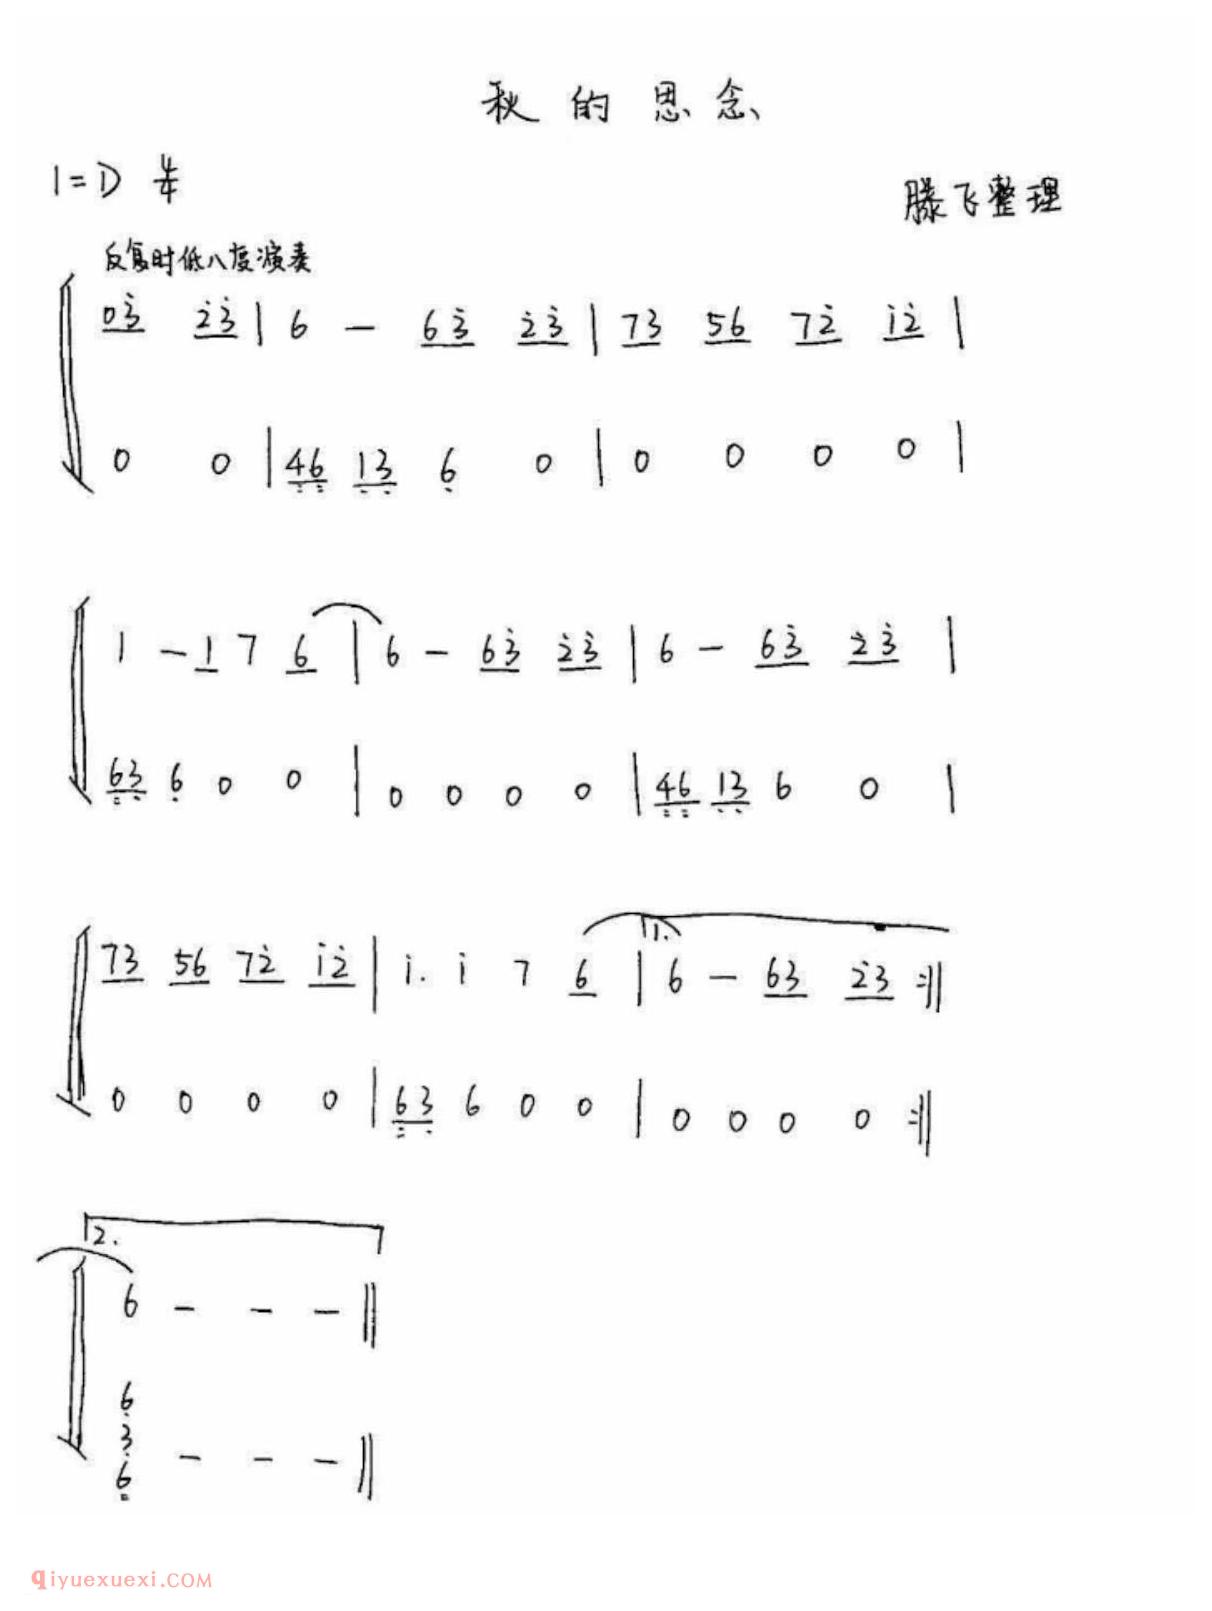 秋的思念
1=D 4/4
滕飞整理
反复时低八度演奏
03̇ 2̇3̇ | 6 — 63̇ 2̇3̇ | 73 56 72̇ 1̇2̇ |
0 0 | 46 13 6 0 | 0 0 0 0 |
1 — 1 7 6 | 6 — 63̇ 2̇3̇ | 6 — 63̇ 2̇3̇ |
63 6 0 0 | 0 0 0 0 | 46 13 6 0 |
1.
73 56 72̇ 1̇2̇ | 1̇. 1̇ 7 6 | 6 — 63 2̇3 :‖
0 0 0 0 | 63 6 0 0 | 0 0 0 0 :‖
2.
6 — — — ‖
6
3
6 — — — ‖
qiyuexuexi.COM